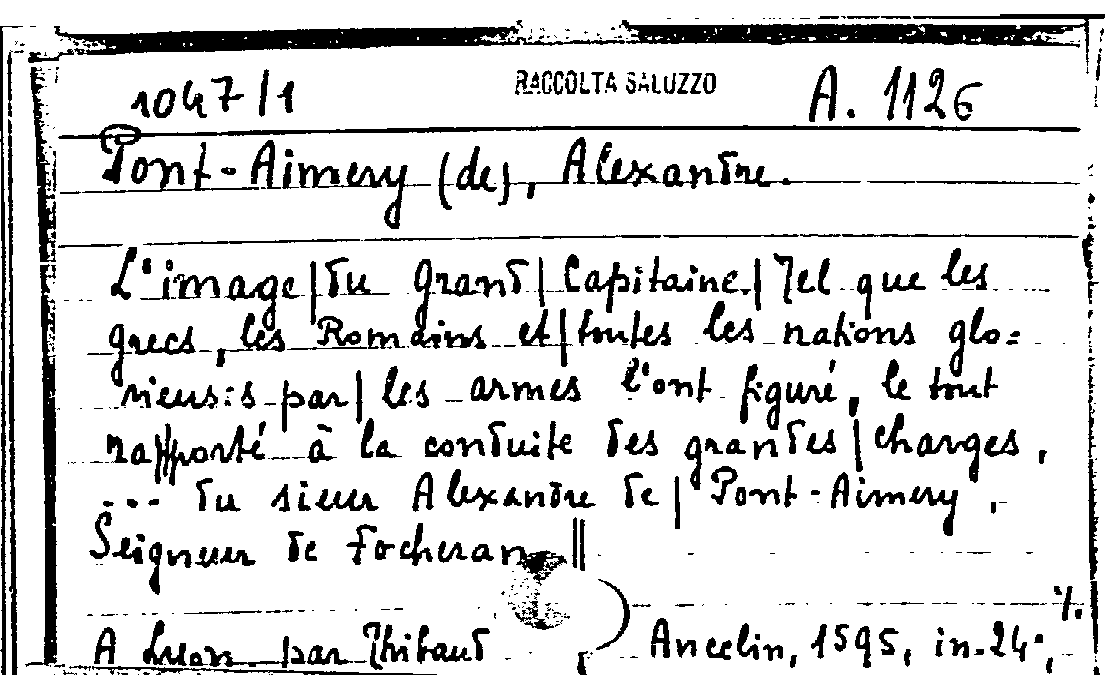 1047/1 RACCOLTA SALUZZO A. 1126
Pont-Aimery (de), Alexandre.
L'image|du grand|Capitaine.|Tel que les
grecs, les Romains et|toutes les nations glo=
rieuses par|les armes l'ont figuré, le tout
rapporté à la conduite des grandes|charges,
... du sieur Alexandre de|Pont-Aimery,
Seigneur de Focheran ||
%.
A Lyon par Thibaud Ancelin, 1595, in-24°,